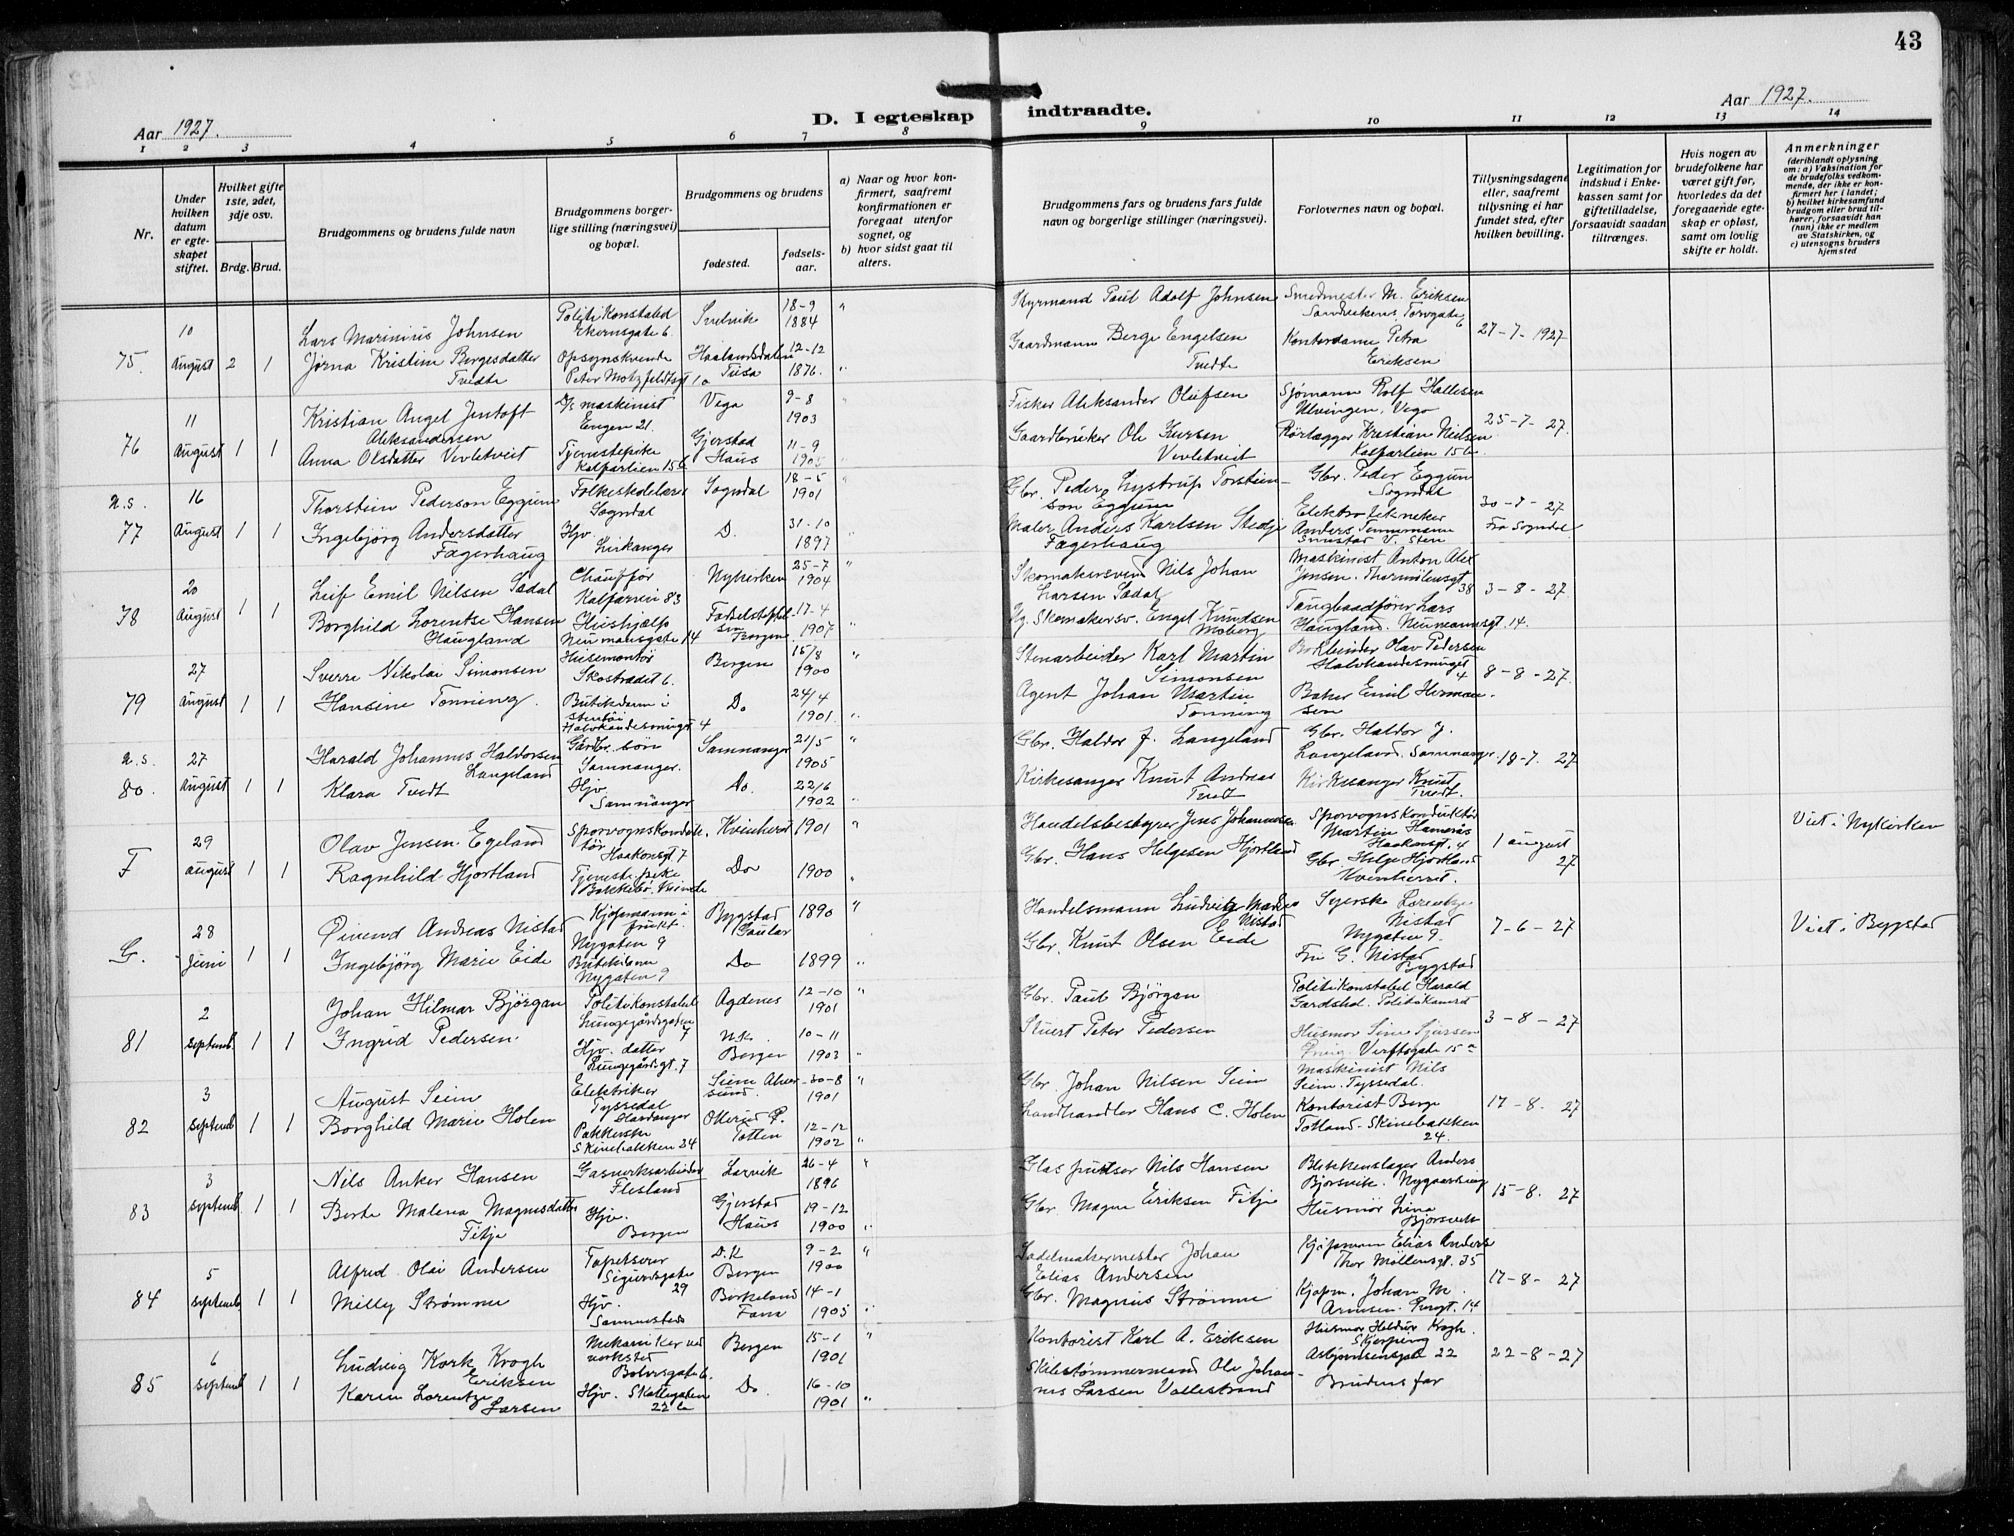 43
Aar 1927.
D. I egteskap indtraadte.
Aar 1927.
1 2 3 4 5 6 7 8 9 10 11 12 13 14
Nr.
Under hvilken datum er egteskapet stiftet.
Hvilket gifte 1ste, 2det, 3dje osv.
Brdg. Brud.
Brudgommens og brudens fulde navn
Brudgommens borgerlige stilling (næringsvei) og bopæl.
Brudgommens og brudens
fødested.
fødselsaar.
a) Naar og hvor konfirmert, saafremt konfirmationen er foregaat utenfor sognet, og
b) hvor sidst gaat til alters.
Brudgommens fars og brudens fars fulde navn og borgerlige stillinger (næringsvei).
Forlovernes navn og bopæl.
Tillysningsdagene eller, saafremt tillysning ei har fundet sted, efter hvilken bevilling.
Legitimation for indskud i Enkekassen samt for giftetilladelse, forsaavidt saadan tiltrænges.
Hvis nogen av brudefolkene har været gift før, hvorledes da det foregaaende egteskap er opløst, samt om lovlig skifte er holdt.
Anmerkninger
(deriblandt oplysning om: a) Vaksination for de brudefolks vedkommende, der ikke er konfirmert her i landet; b) hvilket kirkesamfund brudgom eller brud tilhører, forsaavidt han (hun) ikke er medlem av Statskirken, og c) utensogns bruders hjemsted
75. 10 August 2 1
Lars Marinius Johnsen
Politikonstabel
Ekernsgate 6.
Svelvik 18-9 1884 "
Styrmand Paul Adolf Johnsen
Smedmester M. Eriksen
Sandvikens Torvgate 6
27-7-1927
Jørna Kristine Bergesdatter
Tvedte
Opsynskvinde
Peter Motzfeldtsgt 10
Haalandsdalen
12-12 1876. "
Gaardmann Berge Engelsen
Tvedte
Kontordame Petra
Eriksen
76 11 August 1 1
Kristian Angel Jentoft
Aleksandersen
D/s maskinist
Engen 21.
Vega 9-8 1903
Fisker Aleksander Olufsen
Sjømann Rolf Hallesen
Ulvingen, Vega
25-7-27.
Anna Olsdatter Vevletveit
Tjenestepike
Kalfarlien 15 b
Gjerstad
Haus 11-9 1905
Gaardbruker Ole Iversen
Vevletveit
Rørlægger Kristian Nielsen
Kalfarlien 15 b.
u.s. 77 16 August 1 1
Thorstein Pederson Eggum
Folkeskolelærer
Sogndal
Sogndal 18-5 1901
Gbr. Peder Lystrup Torsteinson Eggum
Gbr. Peder Eggum
Sogndal
30-7-27
Fra Sogndal
Ingebjørg Andersdatter
Fagerhaug
Hjv.
Leikanger
D. 31-10 1897 "
Maler Anders Karlsen Stedje
Fagerhaug
Elektrotekneker
Anders Tennemann
Smestad V. Sten
78 20 August 1 1
Leif Emil Nilsen Sædal
Chauffør
Kalfarvei 83
Nykirken 25-7 1904 "
Skomakersvend Nils Johan
Larsen Sædal
Maskinist Anton Alex
Jensen. Thormølensgt 38
3-8-27.
Borghild Lorentse Hansen
Haugland
Hushjælp
Neumansgate 14
Fødselsstiftelsen Bergen 17-4 1907 "
Hg. Skomakersv. Engel Knudsen
Moberg
Taugbaadfører Lars
Haugland. Neumannsgt 14.
79 27 August 1 1
Sverre Nikolai Simonsen
Husemontør
Skostrædet 6.
Bergen 15/8 1900 "
Stenarbeider Karl Martin
Simonsen
Bokbinder Olav Pedersen
Halvkandesmuget 4
8-8-27.
Hansine Tonning.
Butikdame i
stentøi
Halvkandesmuget 4
Do 24/4 1901. "
Agent Johan Martin
Tonning
Baker Emil Hermansen
u.s. 80. 27 August 1 1
Harald Johannes Haldorsen
Langeland
Gårdbr. søn
Samnanger.
Samnanger 21/5 1905 "
Gbr. Haldor J. Langeland
Gbr. Haldor J.
Langeland. Samnanger
18-7. 27
Klara Tvedt
Hjv.
Samnanger
Do. 22/6 1902 "
Kirkesanger Knut Andreas
Tvedt
Kirkesanger Knut
Tvedt.
F 29 august 1 1
Olav Jensen Egeland
Sporvognskonduktør
Haakonsgt 7
Kvinherred 1901 "
Handelsbestyrer Jens Johannesen
Sporvognskonduktør
Martin Hamerås
Haakonsgt. 4
1 august 27
Viet i Nykirken
Ragnhild Hjortland
Tjenestepike
Do 1900 "
Gbr. Hans Helgesen Hjortland
Gbr. Helge Hjortland
Kvinherred.
G. 28 Juni 1 1
Øivend Andreas Nistad
Kjøpmann i
frukt.
Nygaten 9
Bygstad
Gaular 1890 "
Handelsmann Ludvig
Nistad
Syerske Lorentse
Nistad
Nygaten 9.
7-6-27
Viet i Bygstad
Ingebjørg Marie Eide
Butikdame
Nygaten 9
Do 1899 "
Gbr. Knut Olsen Eide
Fru G. Nistad
Bygstad
81 2 septemb. 1 1
Johan Hilmar Bjørgan
Politikonstabel
Lungegårdsgaten 7
Agdenes 12-10 1901 "
Gbr. Paul Bjørgan
Politikonstabel Harald
Gardshol. Politikamret
3-8-27
Ingrid Pedersen.
Hjv. datter
Lungegårdsgt. 7
N.K.
Bergen 10-11 1903 "
Stuert Peter Pedersen
Husmor Sine Sjursen
Verftsgate 15 a
82 3 septemb 1 1
August Seim
Elektriker
Tyssedal
Hardanger
Seim Alversund. 30-8 1901 "
Gbr. Johan Nilsen Seim
Maskinist Nils
Seim. Tyssedal.
17-8. 27
Borghild Marie Holen
Pakkerske
Skivebakken 24
Totten 12-12 1902 "
Landhandler Hans C. Holen
Kontorist Berge
Totland. Skivebakken
24.
83 3 septemb 1 1
Nils Anker Hansen
Gasverksarbeider
Flesland
Larvik 26-4 1896 "
Glaspudser Nils Hansen
Blikkenslager Anders
Bjørsvik. Nygaardsvei
15-8. 27
Berte Malena Magnesdatter
Fitje
Hjv.
Bergen
Gjerstad
Haus 19-12 1900 "
Gbr. Magne Eriksen Fitje
Husmor Lina
Bjørsvik
84 5 septemb 1 1
Alfred Olai Andersen
Tapetserer
Sigurdsgate
29
D.K
Bergen 9-2 1900 "
Sadelmakermester Johan
Elias Andersen
Kjøpmann Elias Anders
Thor Møllensgt. 35
17-8-27
Milly Strømme
Hjv.
Birkeland
Fana 14-1 1905 "
Gbr. Magnus Strømme
Kjøpm. Johan M.
Arnesen. 14
85 6 septemb 1 1
Ludvig Kork Krogh
Eriksen
Mekaniker ved
verksted
Bøhrsgate 6.
Bergen 15-1 1901 "
Kontorist Karl A. Eriksen
Husmor Haldis Krogh.
Skjerping
Asbjørnsensgate 22
22-8-27
Karin Lorentze
Larsen
Hjv. Skottegaten
22 b
Do. 16-10 1901 "
Skibstømmermand Ole Johannes Larsen Vallestrand
Brudens far